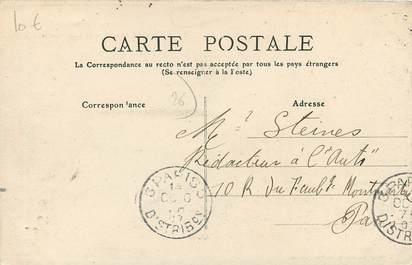 10 €
CARTE POSTALE
La Correspondance au recto n'est pas acceptée par tous les pays étrangers
(Se renseigner à la Poste)
Correspondance
Adresse
26
Mr Steines
Rédacteur à L'Auto
10 R du Faubg Montmartre
Paris
PARIS
DISTRIBON
DISTRIB